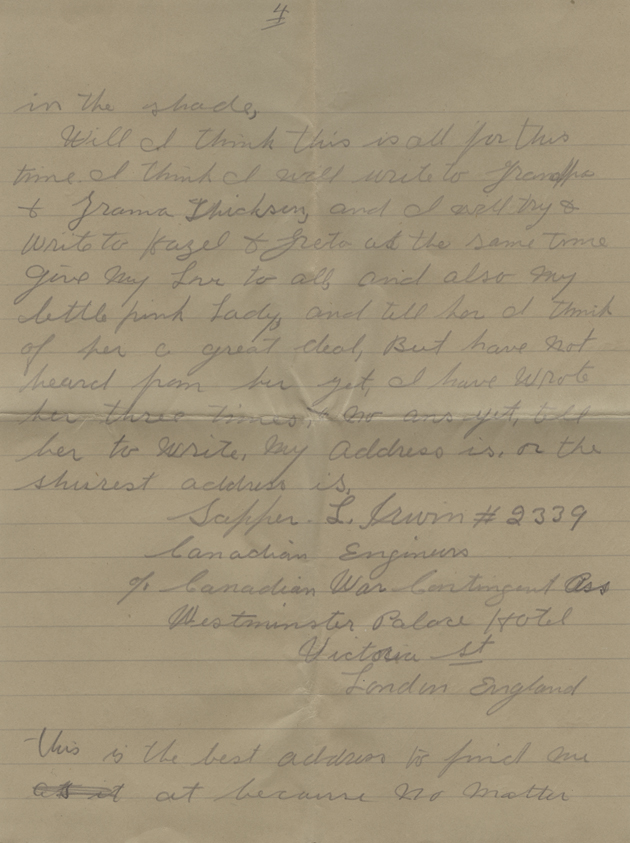 4
in the shade,
Will I think this is all for this
time. I think I will write to Grandpa
& Grama Dickson, and I will try &
Write to Hazel & Greta at the same time
Give My Love to all, and also My
little pink Lady, and tell her I think
of her a great deal, But have not
heard from her yet, I have Wrote
her three times, & no ans yet, tell
her to Write, My Address is, or the
shurest address is,
Sapper L. Irwin # 2339
Canadian Engineers
c/o Canadian War Contingent Ass
Westminster Palace Hotel
Victoria St
London England
This is the best address to find me
at because No Matter